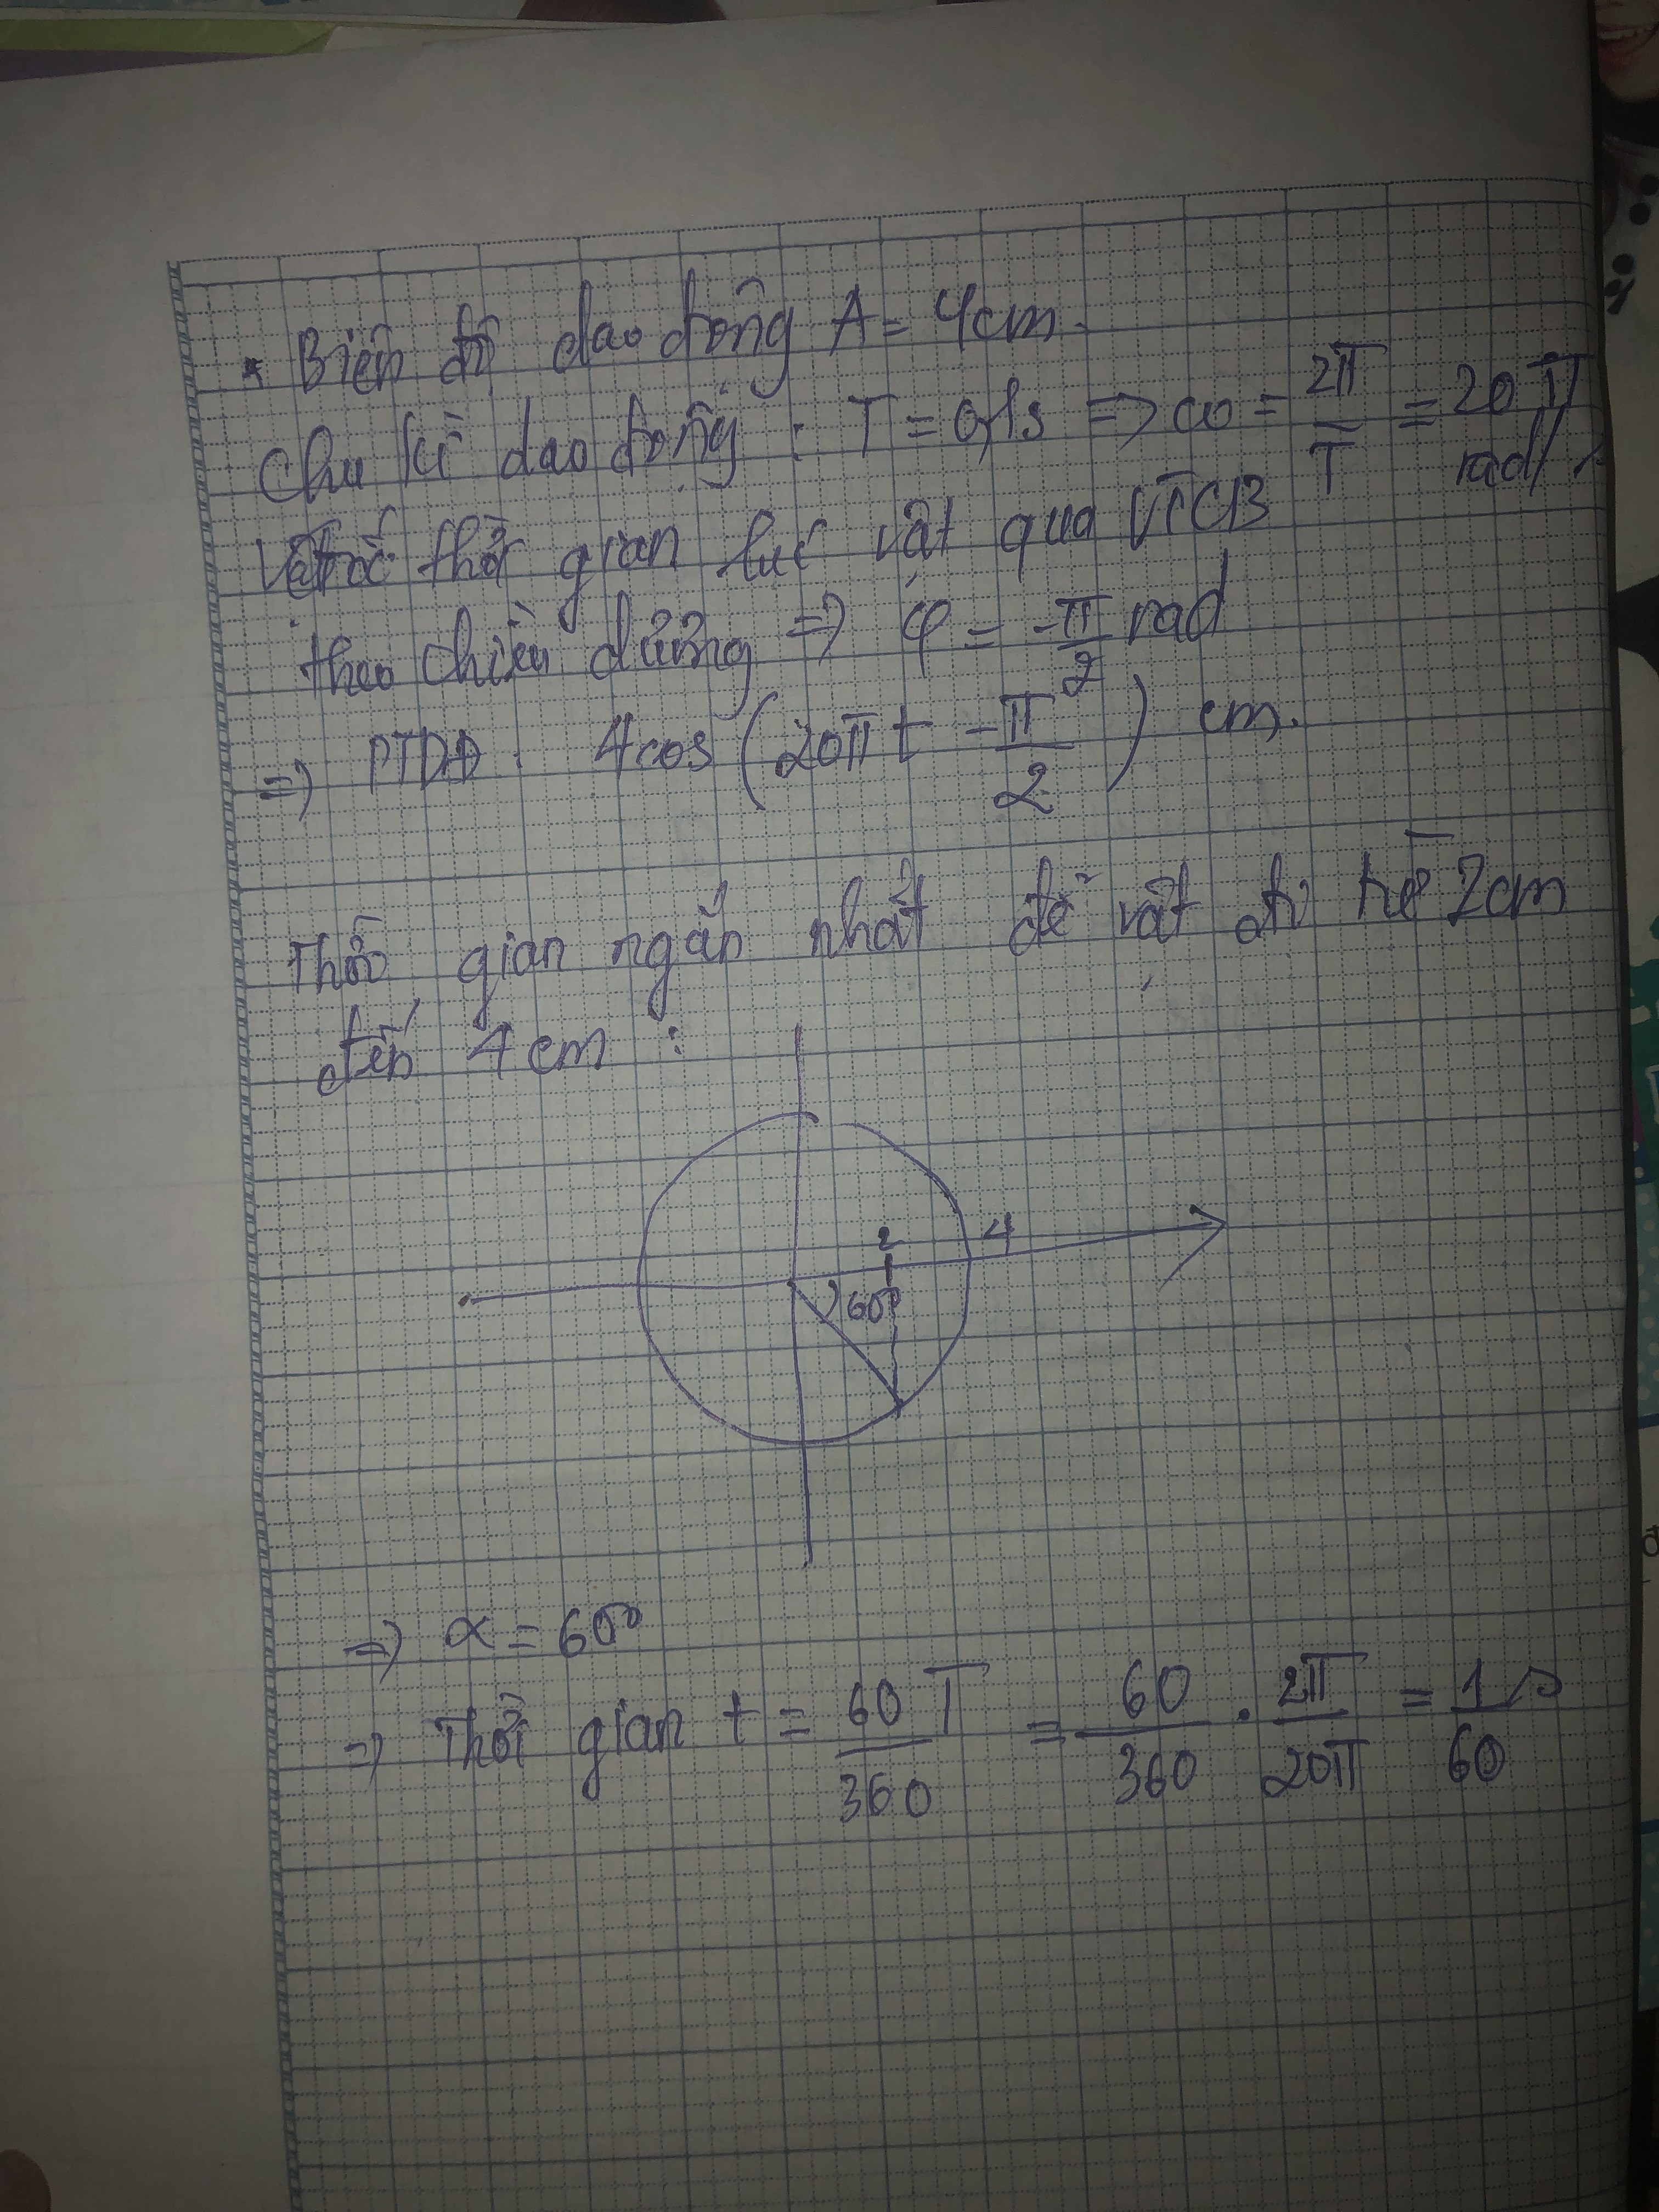 * Biên độ dao động A = 4cm.
Chu kì dao động : T = 0,1s => ω = 2π/T = 20π rad/s
gốc thời gian lúc vật qua VTCB
theo chiều dương => φ = -π/2 rad
=> PTDĐ : 4cos(20πt - π/2) cm.
Thời gian ngắn nhất để vật đi từ 2cm
đến 4cm :
2 4
60°
=> α = 60°
=> Thời gian t = 60T/360 = 60/360 . 2π/20π = 1/60 s